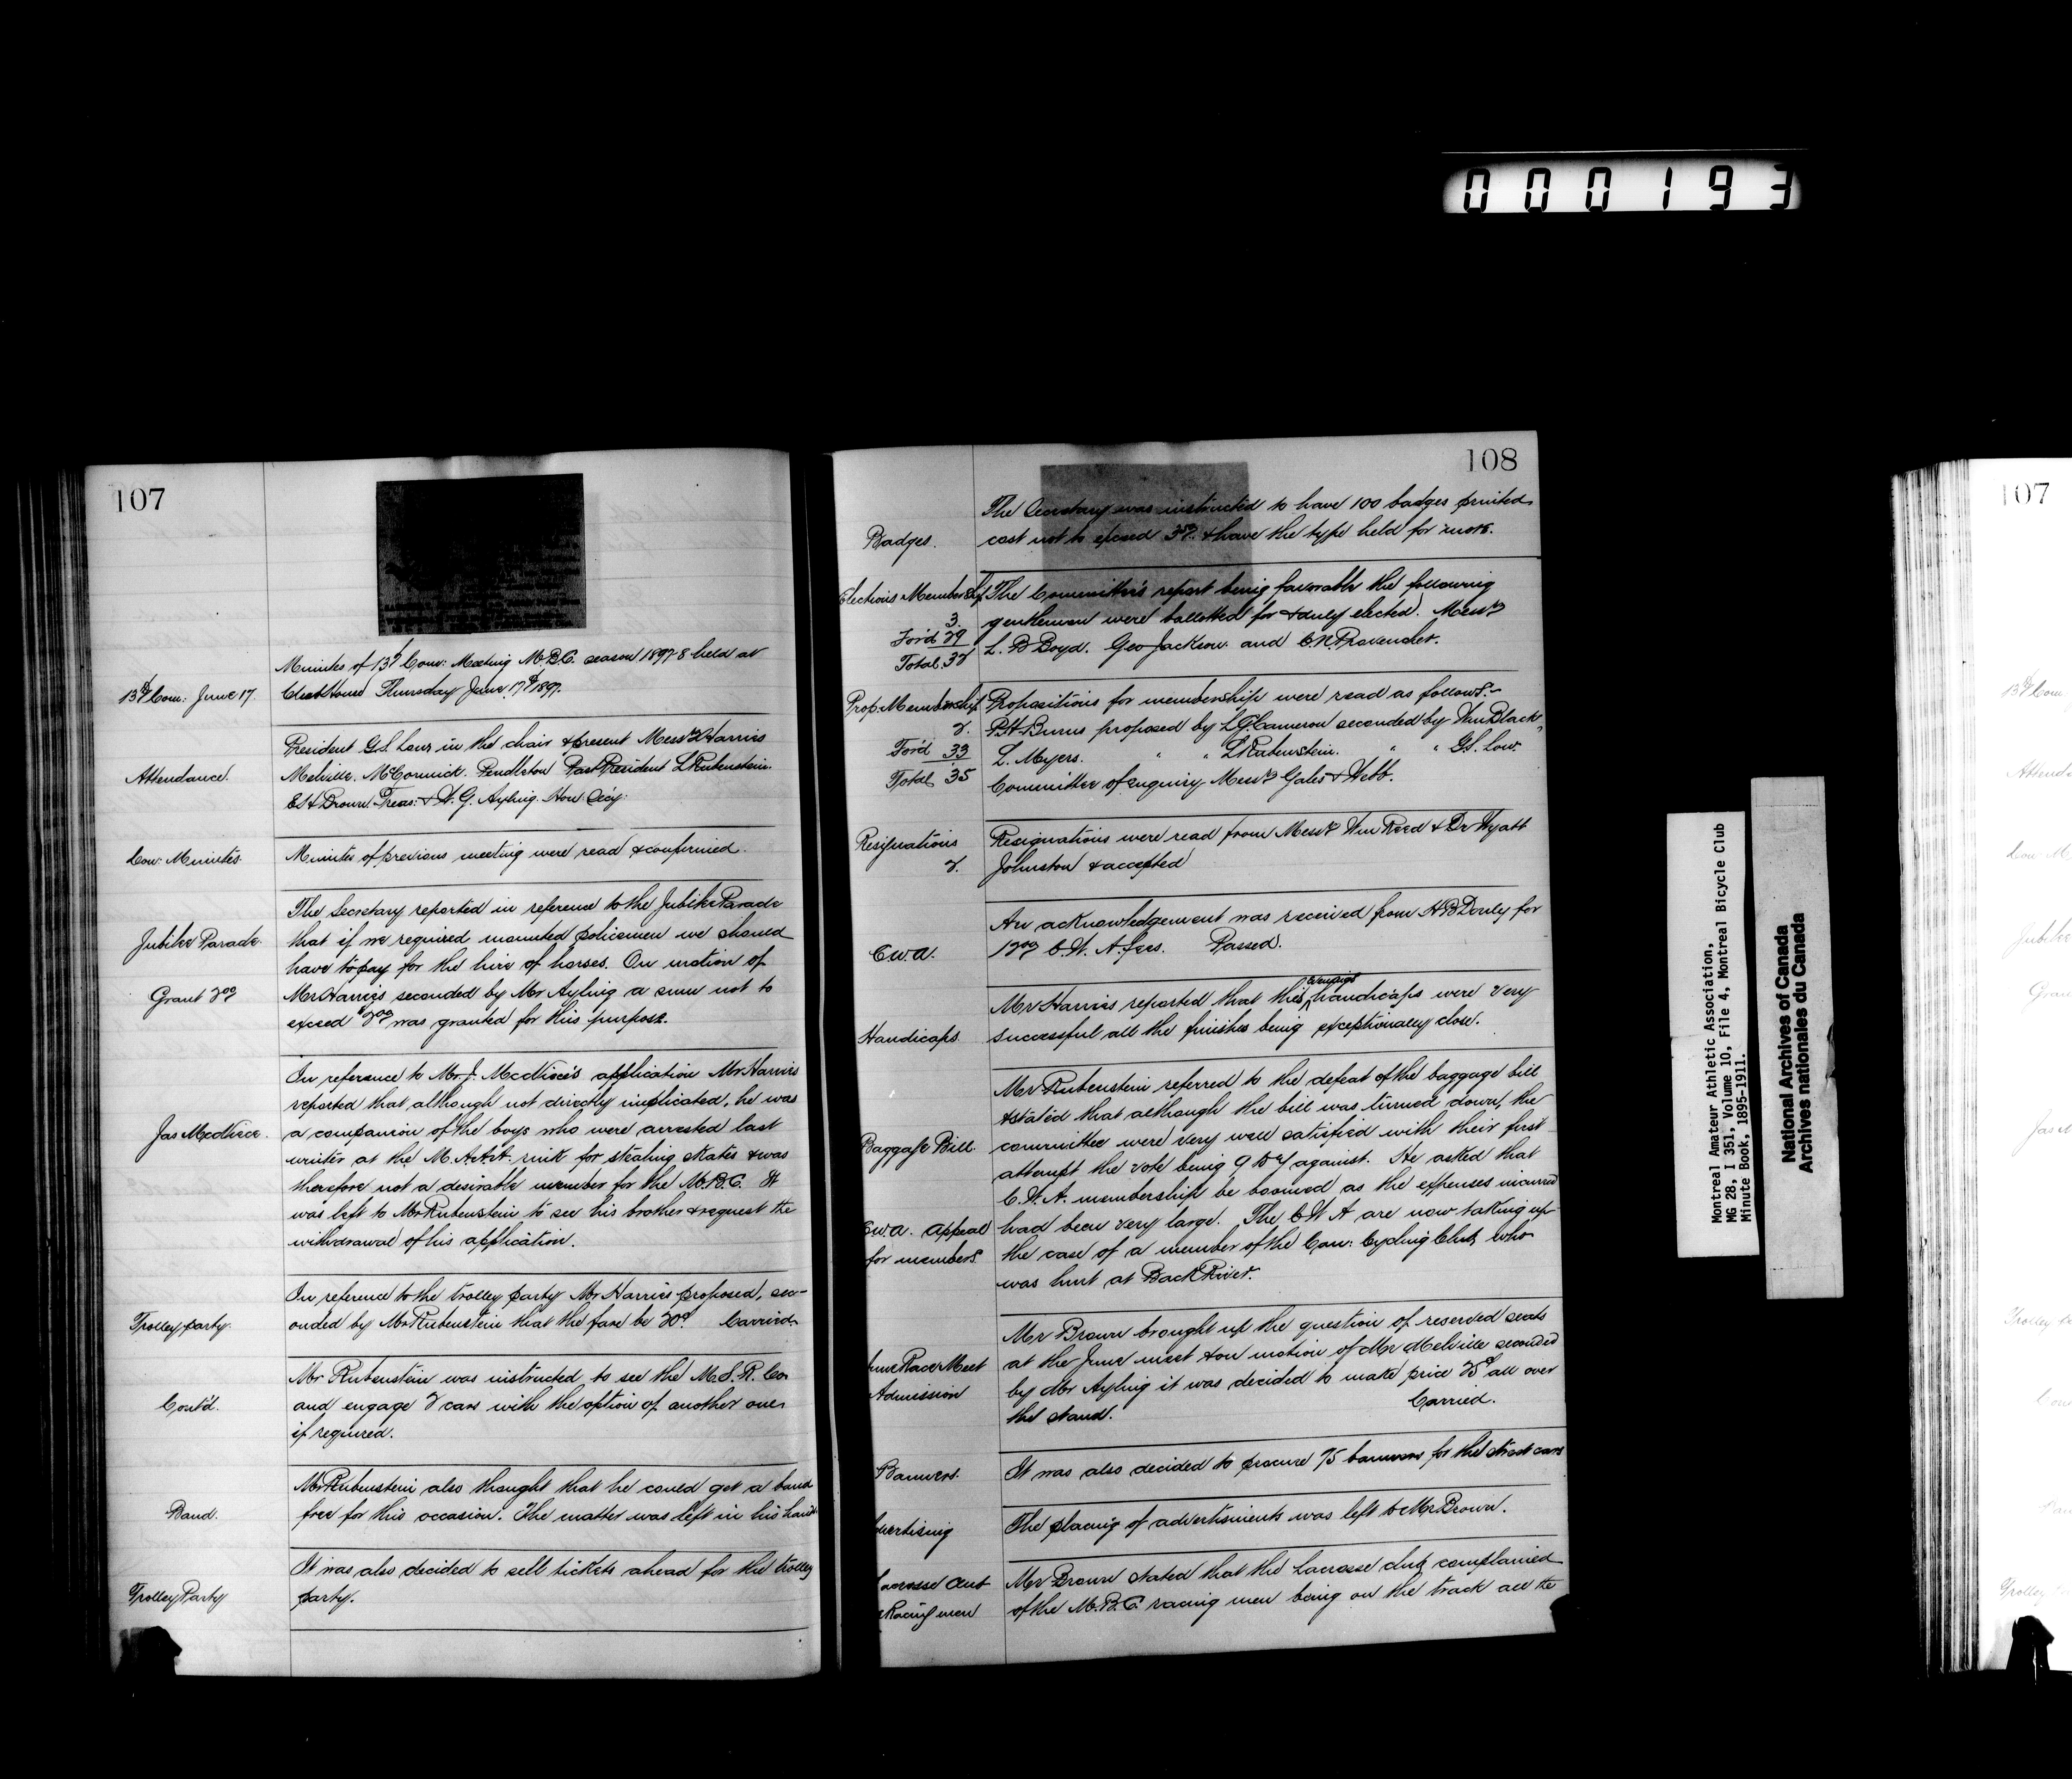 000193
107
Minutes of 13th Com: Meeting M.B.C. season 1897-8 held at
13th Com: June 17. Club House Thursday June 17th 1897.
President G.S. Low in the chair & present Messrs Harries
Attendance. Melville. McCormick. Pendleton Past President L Rubenstein.
E.H. Brown. Treas: & W.G. Ayling. Hon: Secy:
Con: Minutes. Minutes of previous meeting were read & confirmed.
The Secretary reported in reference to the Jubilee Parade
Jubilee Parade. that if we required mounted policemen we should
have to pay for the hire of horses. On motion of
Grant 200 Mr Harries seconded by Mr Ayling a sum not to
exceed $2.00 was granted for this purpose.
In reference to Mr. J. McNiece's application Mr Harries
reported that although not directly implicated, he was
Jas McNiece. a companion of the boys who were arrested last
winter at the M.A.A.A. rink for stealing skates & was
therefore not a desirable member for the M.B.C. It
was left to Mr Rubenstein to see his brother & request the
withdrawal of his application.
In reference to the trolley party Mr Harries proposed, sec-
Trolley party. onded by Mr Rubenstein that the fare be 20c. Carried
Mr Rubenstein was instructed to see the M.S.R. Co.
Cont'd. and engage 2 cars with the option of another one
if required.
Mr Rubenstein also thought that he could get a band
Band. free for this occasion. The matter was left in his hands.
It was also decided to sell tickets ahead for the trolley
Trolley Party party.
108
The Secretary was instructed to have 100 badges printed
Badges. cost not to exceed & have the type held for more.
Elections Membership The Committee's report being favorable the following
3. gentlemen were ballotted for & duly elected. Messrs
For'd 29 L. B Boyd. Geo Jackson. and C.N. Provencher.
Total. 32
Prop: Membership Propositions for membership were read as follows:-
2. P.H. Burns proposed by L.G. Cameron seconded by Wm Black
For'd 33 L. Meyers. " " L Rubenstein. " " G.S. Low.
Total 35 Committee of enquiry Messrs Gales & Webb.
Resignations Resignations were read from Messrs Wm Reed & Dr Wyatt
2. Johnston & accepted
An acknowledgement was received from H.B. Donly for
C.W.A. C.W.A. fees. Passed.
Mr Harries reported that this evenings handicaps were very
Handicaps. successful all the finishes being exceptionally close.
Mr Rubenstein referred to the defeat of the baggage bill
& stated that although the bill was turned down, the
Baggage Bill. committee were very well satisfied with their first
attempt the vote being against. He asked that
C.W.A. membership be boomed as the expenses incurred
C.W.A. Appeal had been very large. The C W A are now taking up
for members. the case of a member of the Can: Cycling Club who
was hurt at Back River.
Mr Brown brought up the question of reserved seats
June Race Meet at the June meet & on motion of Mr Melville seconded
Admission by Mr Ayling it was decided to make price 25c all over
the stand. Carried.
Banners. It was also decided to procure 75 banners for the street cars
Advertising The placing of advertisments was left to Mr Brown.
Lacrosse Club Mr Brown stated that the Lacrosse club complained
& Racing men of the M.B.C. racing men being on the track all the
Montreal Amateur Athletic Association,
MG 28, I 351, Volume 10, File 4, Montreal Bicycle Club
Minute Book, 1895-1911.
National Archives of Canada
Archives nationales du Canada
107
13th Com
Attend
Con M
Jubilee
Gran
Jas M
Trolley
Con
Ban
Trolley